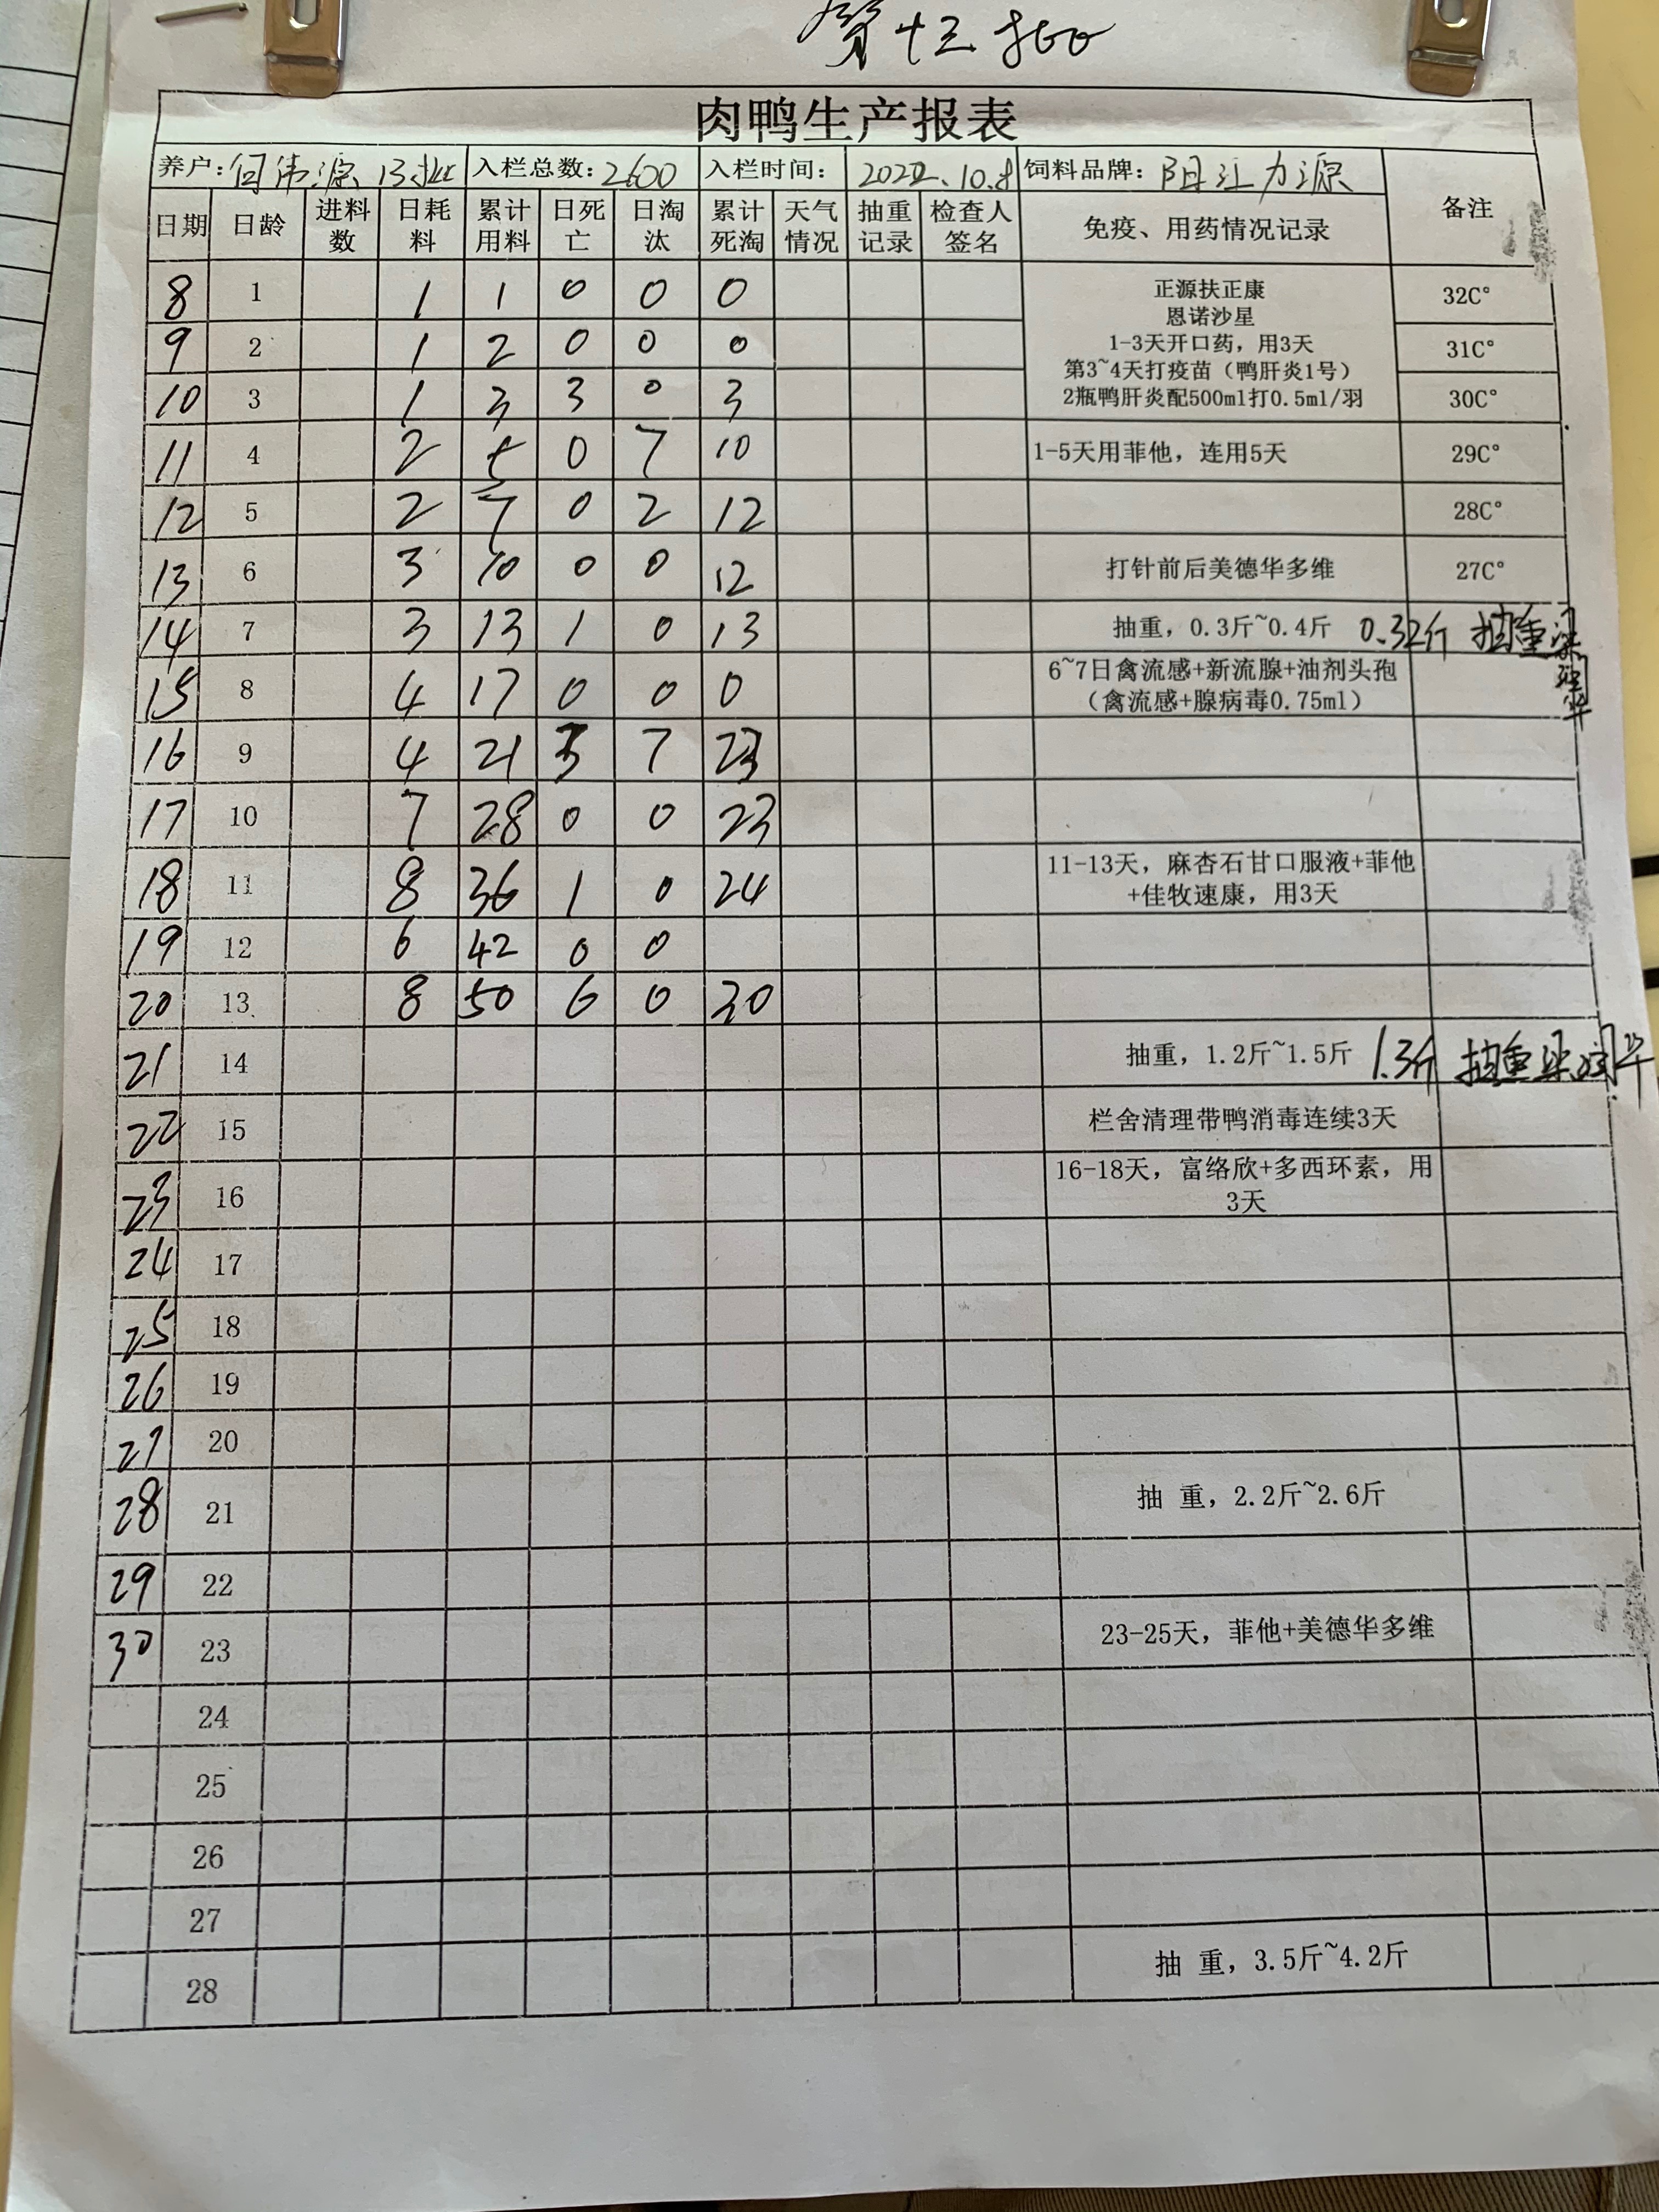 第十三批
肉鸭生产报表
养户: 何伟源 13批 入栏总数: 2600 入栏时间: 2022.10.8 饲料品牌: 阳江力源 备注
日期 日龄 进料数 日耗料 累计用料 日死亡 日淘汰 累计死淘 天气情况 抽重记录 检查人签名 免疫、用药情况记录
8 1 1 1 0 0 0 正源扶正康 32C°
恩诺沙星
9 2 1 2 0 0 0 1-3天开口药，用3天 31C°
第3~4天打疫苗（鸭肝炎1号）
10 3 1 3 3 0 3 2瓶鸭肝炎配500ml打0.5ml/羽 30C°
11 4 2 5 0 7 10 1-5天用菲他，连用5天 29C°
12 5 2 7 0 2 12 28C°
13 6 3 10 0 0 12 打针前后美德华多维 27C°
14 7 3 13 1 0 13 抽重，0.3斤~0.4斤 0.32斤 抽重梁
15 8 4 17 0 0 0 6~7日禽流感+新流腺+油剂头孢
（禽流感+腺病毒0.75ml）
16 9 4 21 3 7 23
17 10 7 28 0 0 23
18 11 8 36 1 0 24 11-13天，麻杏石甘口服液+菲他
+佳牧速康，用3天
19 12 6 42 0 0
20 13 8 50 6 0 30
21 14 抽重，1.2斤~1.5斤 1.3斤 抽重梁润华
22 15 栏舍清理带鸭消毒连续3天
23 16 16-18天，富络欣+多西环素，用
3天
24 17
25 18
26 19
27 20
28 21 抽 重，2.2斤~2.6斤
29 22
30 23 23-25天，菲他+美德华多维
24
25
26
27
28 抽 重，3.5斤~4.2斤